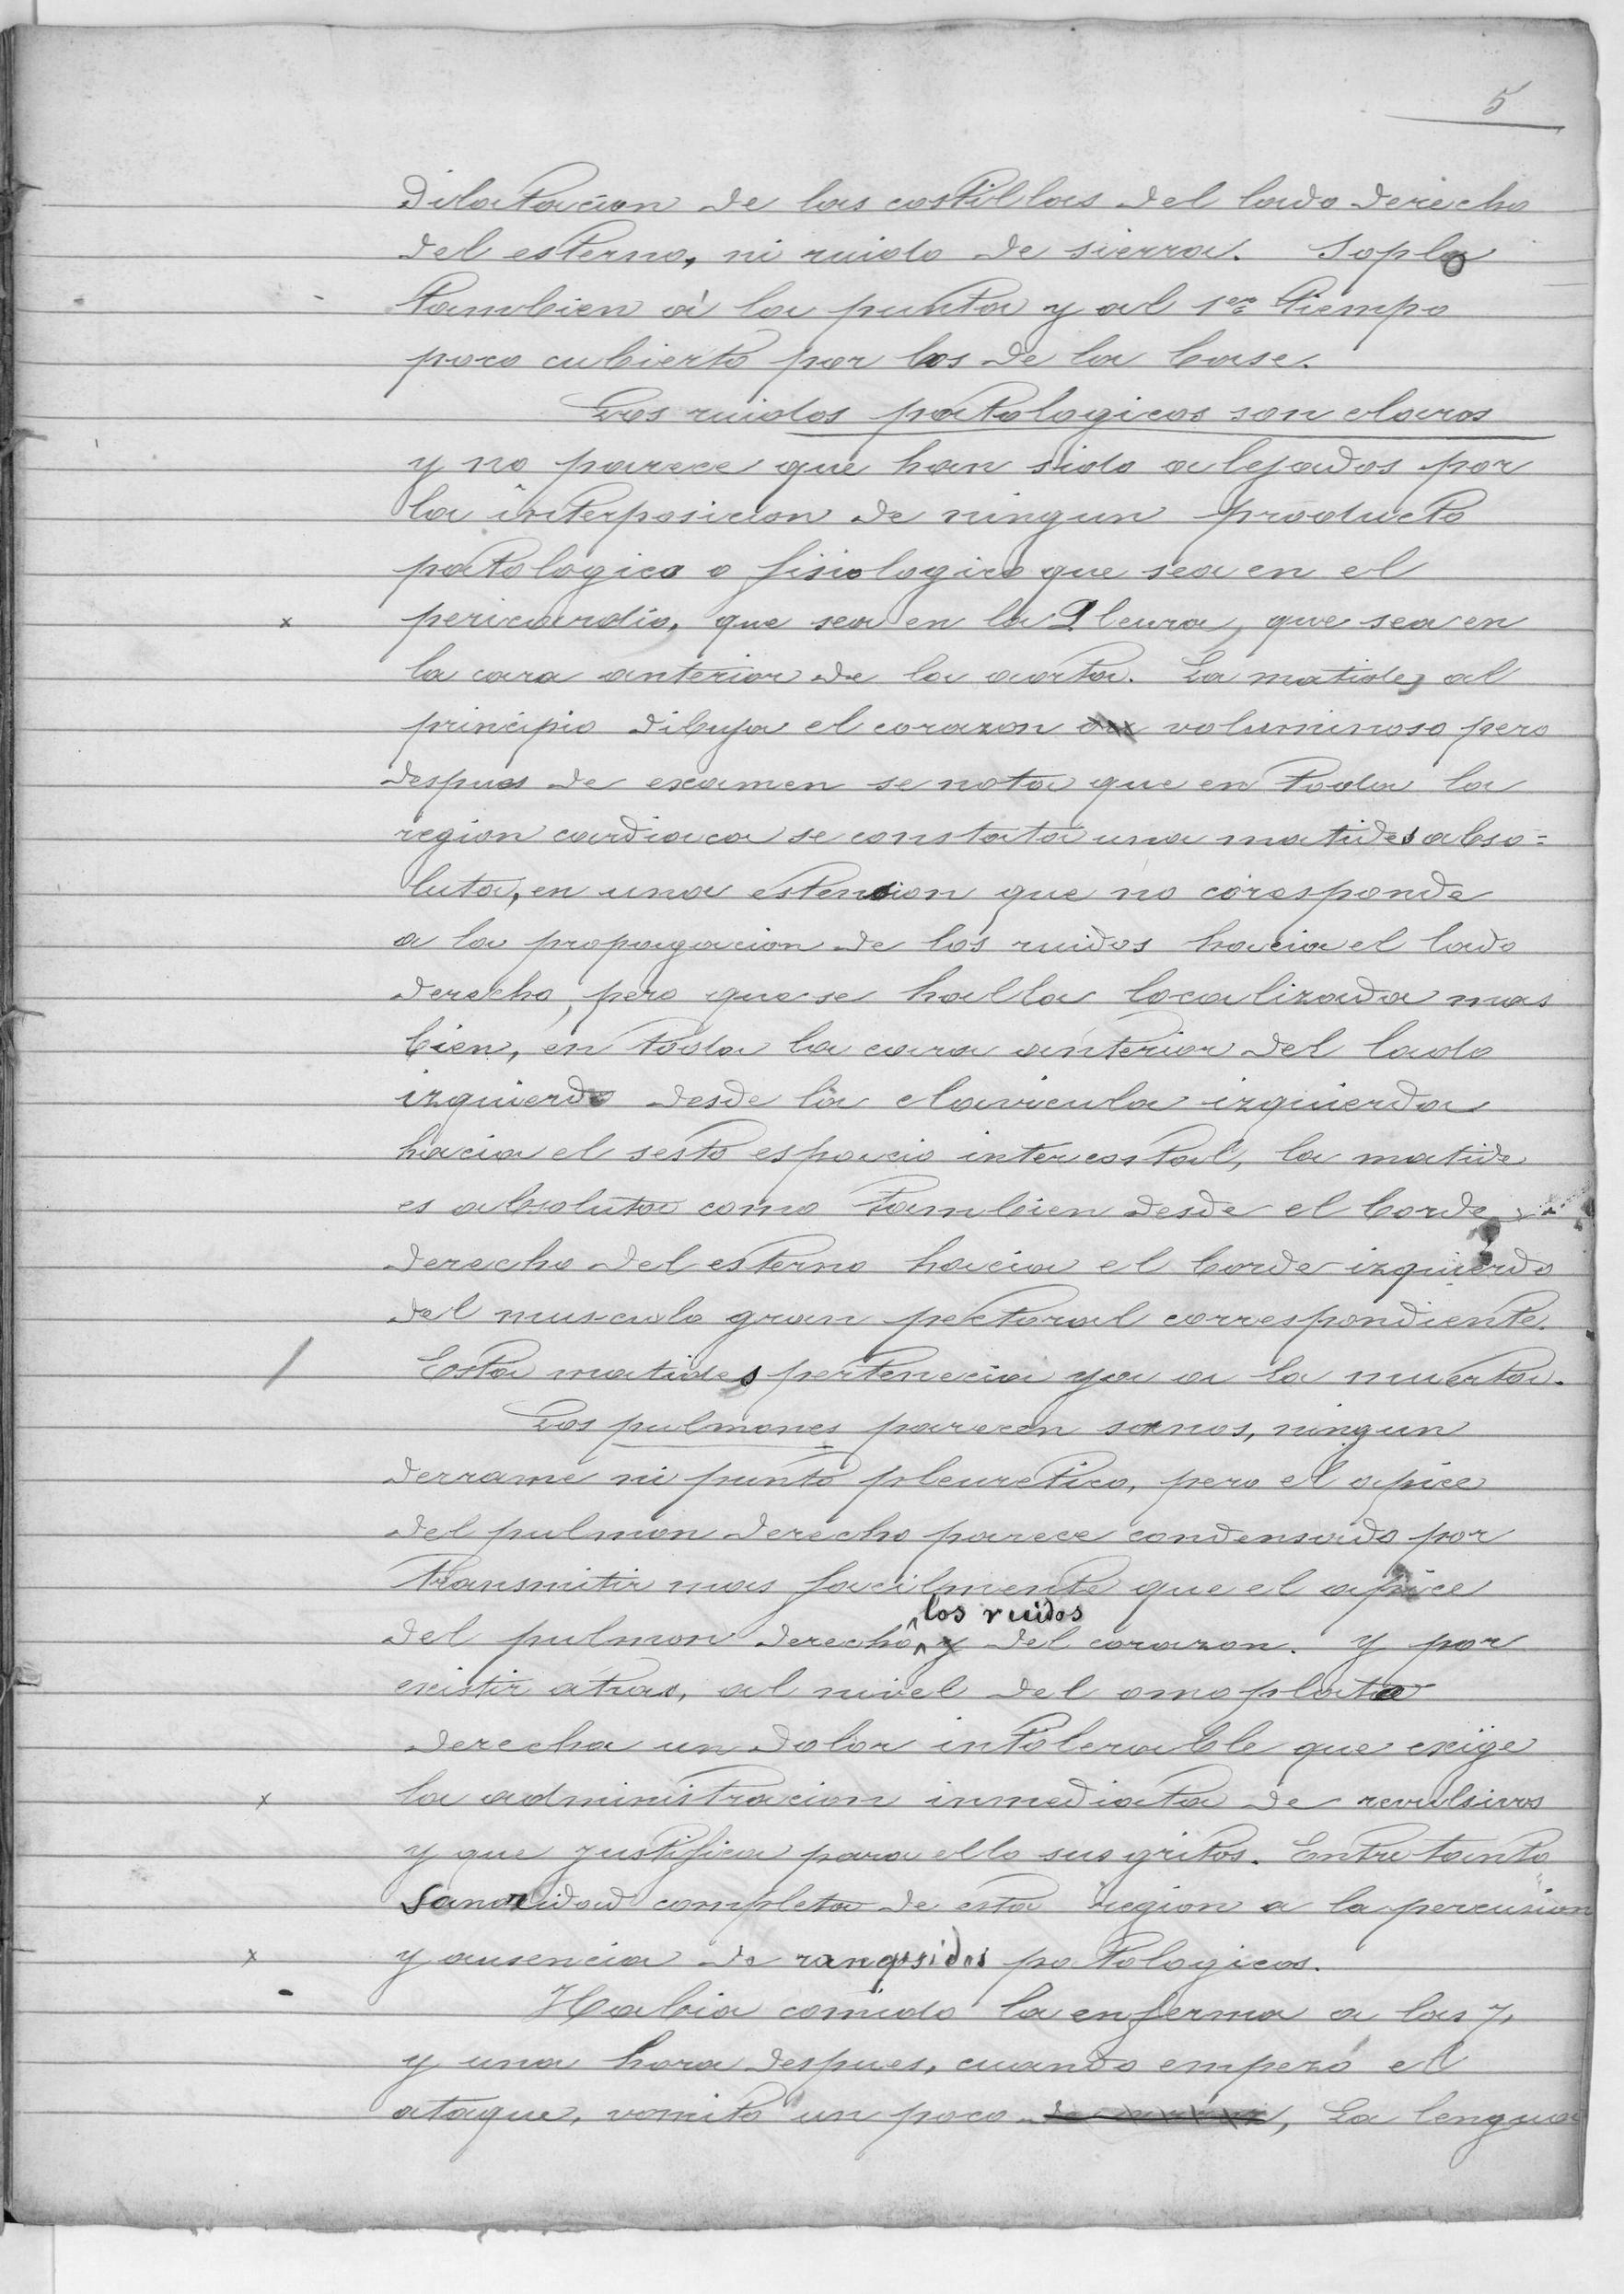 5
Dilatacion de las costillas del lado derecho
del esterno, ni ruido de sierra. Soplo
tambien à la punta y al 1er tiempo
poco cubierto por los de la base.
Los ruidos patologicos son claros
y no parece que han sido alejados por
la interposicion de ningun producto
patologico o fisiologico que sea en el
x pericardio, que sea en la Pleura, que sea en
la cara anterior de la aorta. La matides, al
principio dibuja el corazon voluminoso pero
despues de examen se nota que en toda la
region cardiaca se constata una matides abso=
luta, en una estension que no coresponde
a la propagacion de los ruidos hacia el lado
derecho, pero que se halla localizada mas
bien, en toda la cara anterior del lado
izquierdo desde la clavicula izquierda
hacia el sesto espacio intercostal, la matide
es absoluta como tambien desde el borde
derecho del esterno hacia el borde izquierdo
del musculo gran pectoral correspondiente.
/ Esta matides pertenecia ya a la muerta.
Los pulmones parecen sanos, ningun
derrame ni punto pleuretico, pero el apice
del pulmon derecho parece condensado por
transmitir mas facilmente que el apice
los ruidos
del pulmon derecho y del corazon. y por
existir atras, al nivel del omoplato
derecha un dolor intolerable que exige
x la administracion inmediata de revulsivos
y que justifica para ello sus gritos. Entre tanto
Sanoridad completa de esta region a la percusion
x y ausencia de patologicos.
Habia comido la enferma a las 7,
y una hora despues, cuando empezó el
ataque, vomito un poco de, La lengua